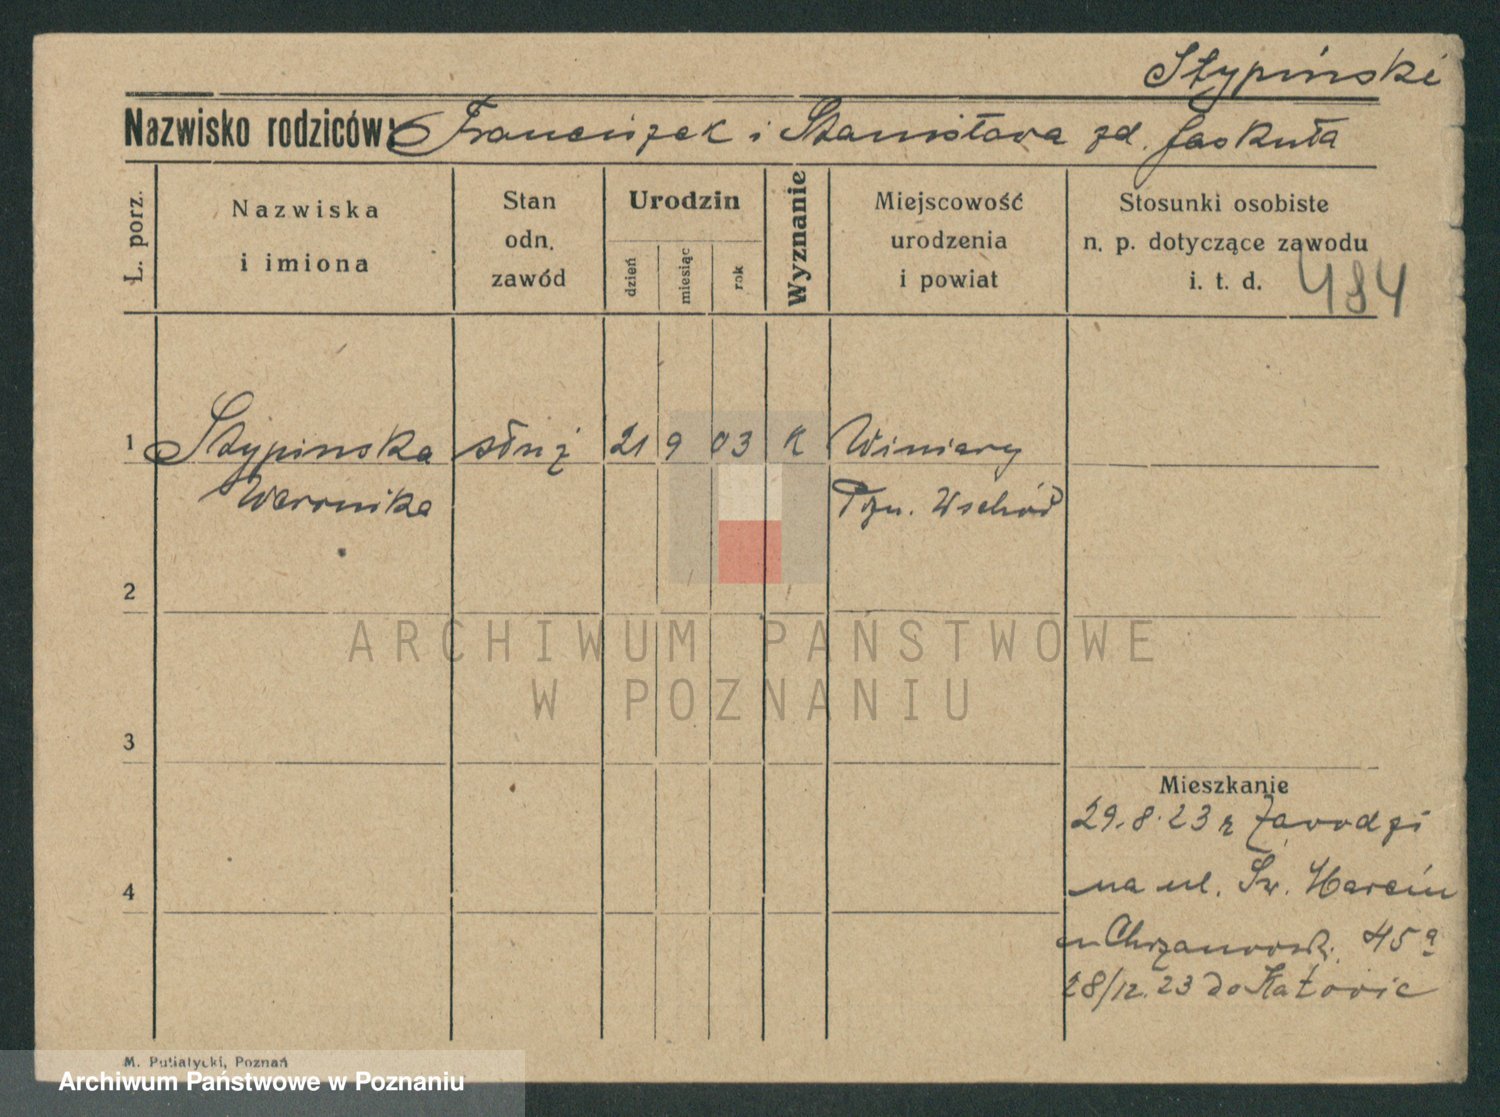 Stypiński
Nazwisko rodziców: Franciszek i Stanisława zd. Jaskuła
Ł. porz.
Nazwiska
i imiona
Stan
odn.
zawód
Urodzin
dzień
miesiąc
rok
Wyznanie
Miejscowość
urodzenia
i powiat
Stosunki osobiste
n. p. dotyczące zawodu
i. t. d.
484
1 Stypinska służ 21 9 03 K Winiary
Weronika Pzn. Wschód
2
ARCHIWUM PAŃSTWOWE
W POZNANIU
3
Mieszkanie
29.8.23 z Zawodzi
4
na ul. Św. Marcin
Chrzanowsk. 45a
28/12.23 do Katowic
M. Putiatycki, Poznań
Archiwum Państwowe w Poznaniu